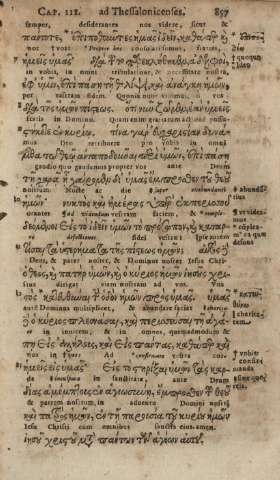 CAP. III. ad Thessalonicenses. 857
semper, desiderantes nos videre, sicut &
πάντοτε, ἐπιποθοῦντες ἡμᾶς ἰδεῖν, καθάπερ καὶ
nos vos: Propter hoc consolati sumus, fratres,
ἡμεῖς ὑμᾶς. διὰ τοῦτο παρεκλήθημεν, ἀδελφοί,
in vobis, in omni tribulatione, & necessitate nostra,
ἐφ' ὑμῖν, ἐπὶ πάσῃ τῇ θλίψει καὶ ἀνάγκῃ ἡμῶν,
per vestram fidem. Quoniam nunc vivimus, si vos
διὰ τῆς ὑμῶν πίστεως. ὅτι νῦν ζῶμεν, ἐὰν ὑμεῖς
statis in Domino. Quam enim gratiarum actionem possu-
στήκετε ἐν κυρίῳ. τίνα γὰρ εὐχαριστίαν δυνά-
mus retribuere pro vobis in omni
μεθα τῷ θεῷ ἀνταποδοῦναι περὶ ὑμῶν, ἐπὶ πάσῃ
gaudio quo gaudemus propter vos ante Deum
τῇ χαρᾷ ᾗ χαίρομεν δι' ὑμᾶς ἔμπροσθεν τοῦ θεοῦ
nostrum. Nocte ac die
ἡμῶν νυκτὸς καὶ ἡμέρας ὑπὲρ ἐκπερισσοῦ
orantes vestram faciem, &
δεόμενοι εἰς τὸ ἰδεῖν ὑμῶν τὸ πρόσωπον, καὶ καταρτί-
fidei vestræ? Ipse autem
ὑστερήματα τῆς πίστεως ὑμῶν; αὐτὸς δὲ
Deus, & pater noster, & Dominus noster Jesus Chri-
ὁ θεὸς, καὶ πατὴρ ἡμῶν, καὶ ὁ κύριος ἡμῶν ἰησοῦς χρι-
stus dirigat viam nostram ad vos. Vos
στὸς κατευθύναι τὴν ὁδὸν ἡμῶν πρὸς ὑμᾶς. ὑμᾶς
autem Dominus multiplicet, & abundare faciat
δὲ ὁ κύριος πλεονάσαι, καὶ περισσεύσαι τῇ ἀγά-
in invicem, & in omnes, quemadmodum &
πῃ εἰς ἀλλήλους, καὶ εἰς πάντας, καθάπερ καὶ
nos in vos: Ad vestra
ἡμεῖς εἰς ὑμᾶς. εἰς τὸ στηρίξαι ὑμῶν τὰς καρ-
da in sanctitate, ante Deum
δίας ἀμέμπτους ἐν ἁγιωσύνῃ, ἔμπροσθεν τοῦ θεοῦ
& patrem nostrum, in adventu Domini nostri
καὶ πατρὸς ἡμῶν, ἐν τῇ παρουσίᾳ τοῦ κυρίου ἡμῶν
Jesu Christi cum omnibus sanctis ejus. amen.
ἰησοῦ χριστοῦ μετὰ πάντων τῶν ἁγίων αὐτοῦ.